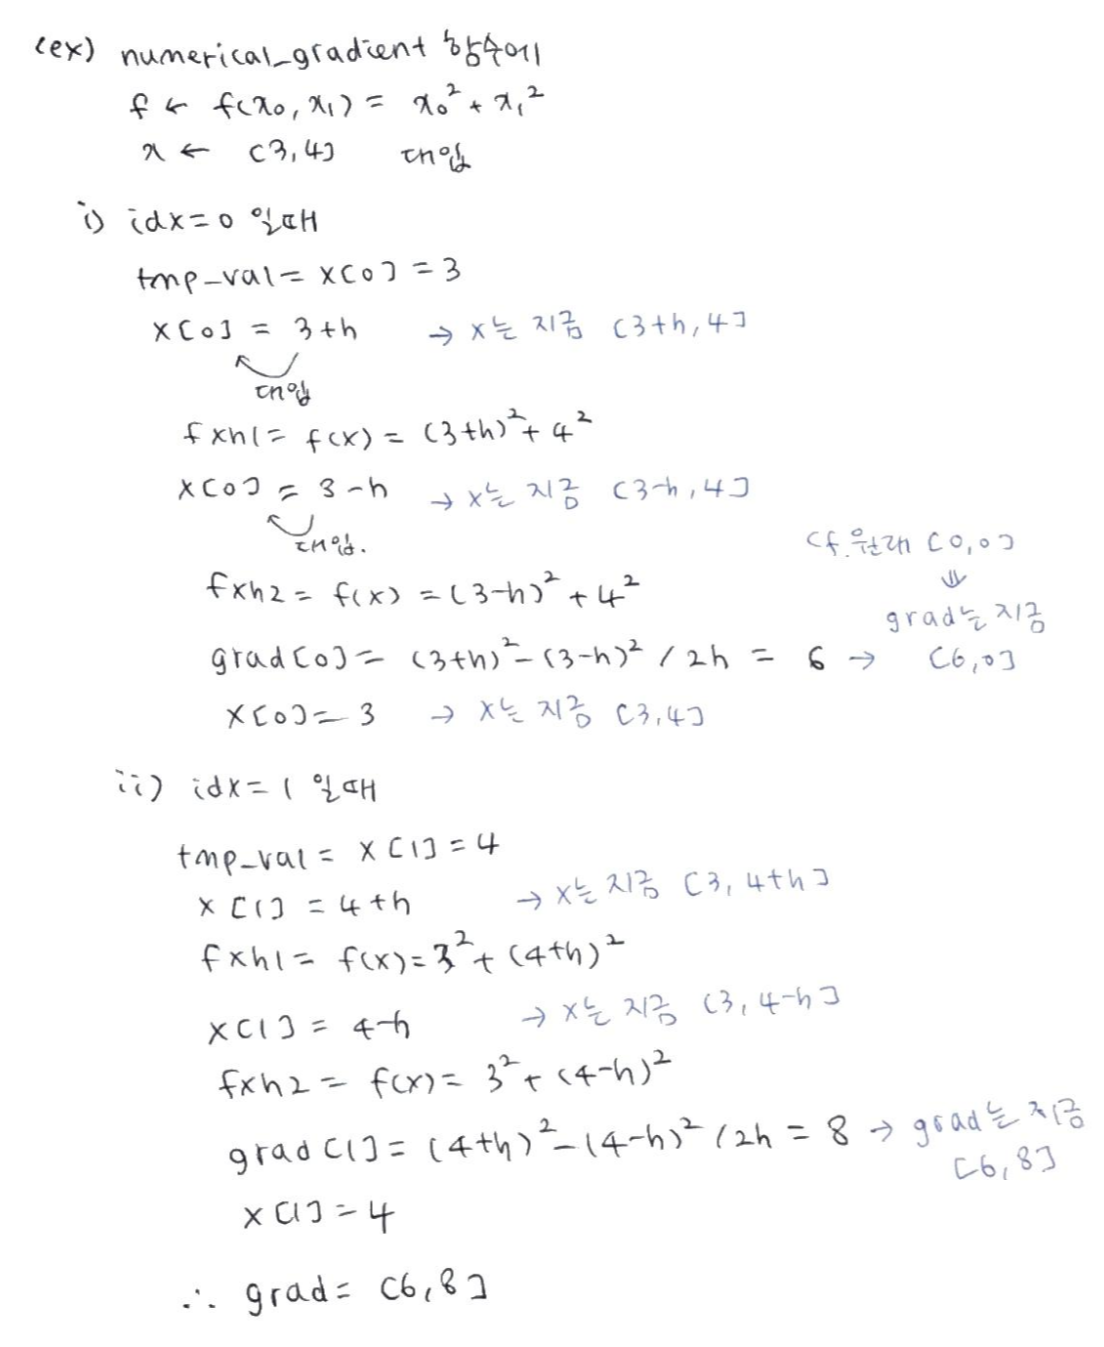 (ex) numerical_gradient 함수에
f ← f(x₀, x₁) = x₀² + x₁²
x ← [3,4] 대입
i) idx=0 일때
tmp_val = x[0] = 3
x[0] = 3+h → x는 지금 [3+h, 4]
대입
fxh1 = f(x) = (3+h)² + 4²
x[0] = 3-h → x는 지금 [3-h, 4]
대입.
cf. 원래 [0,0]
⇓
fxh2 = f(x) = (3-h)² + 4²
grad는 지금
grad[0] = (3+h)² - (3-h)² / 2h = 6 → [6,0]
x[0] = 3 → x는 지금 [3,4]
ii) idx=1 일때
tmp_val = x[1] = 4
x[1] = 4+h → x는 지금 [3, 4+h]
fxh1 = f(x) = 3² + (4+h)²
x[1] = 4-h → x는 지금 [3, 4-h]
fxh2 = f(x) = 3² + (4-h)²
grad[1] = (4+h)² - (4-h)² / 2h = 8 → grad는 지금
[6,8]
x[1] = 4
∴ grad = [6,8]